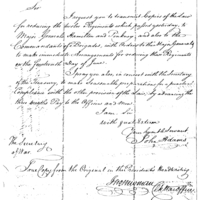 Sir
I request you to transmit Copies of the Law
for reducing the twelve Regiments which passed yesterday, to
Major Generals Hamilton and Pinckney, and also to the
Commandants of Brigades, with Orders to the Major Generals
to make immediate Arrangements for reducing those Regiments
on the fourteenth day of June.
I pray you also, in concert with the Secretary
of the Treasury, to make seasonable preparations for a punctual
Compliance with the other provision of the Law, by advancing the
three months Pay to the Officers and Men.
I am Sir
with great esteem
Your most obt Servant
John Adams
The Secretary
of War.
True Copy from the Original in the President's Handwriting